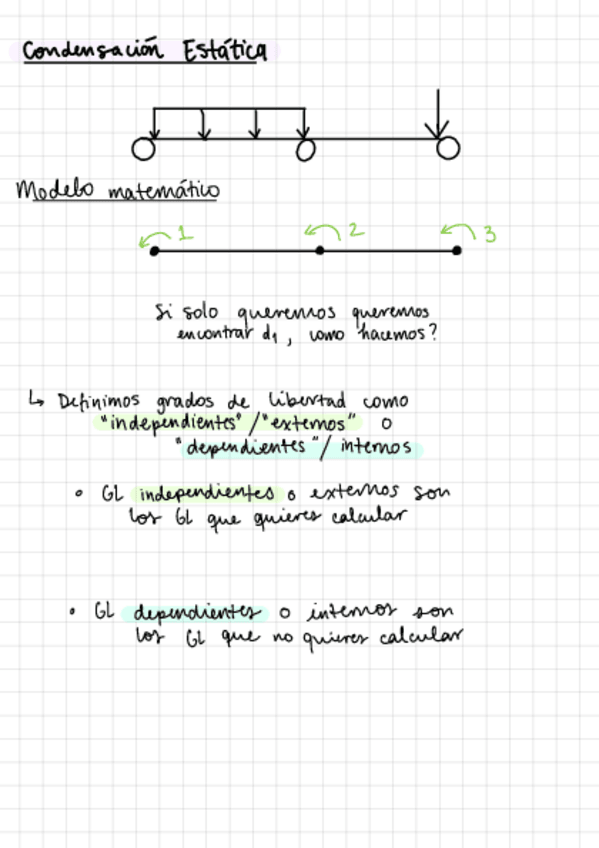 Condensación Estática
Modelo matemático
1 2 3
Si solo queremos queremos
encontrar d₁, como hacemos?
↳ Definimos grados de libertad como
"independientes"/"externos" o
"dependientes"/ internos
• GL independientes o externos son
los GL que quieres calcular
• GL dependientes o internos son
los GL que no quieres calcular